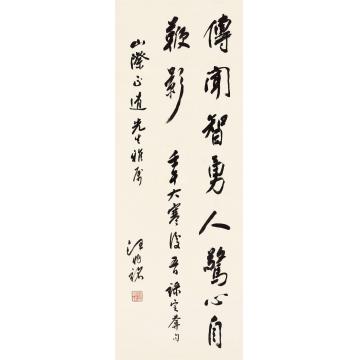 傳聞智勇人驚心自
鞭影 壬午大寒後 定盦句
山際正道先生雅屬
汪兆銘